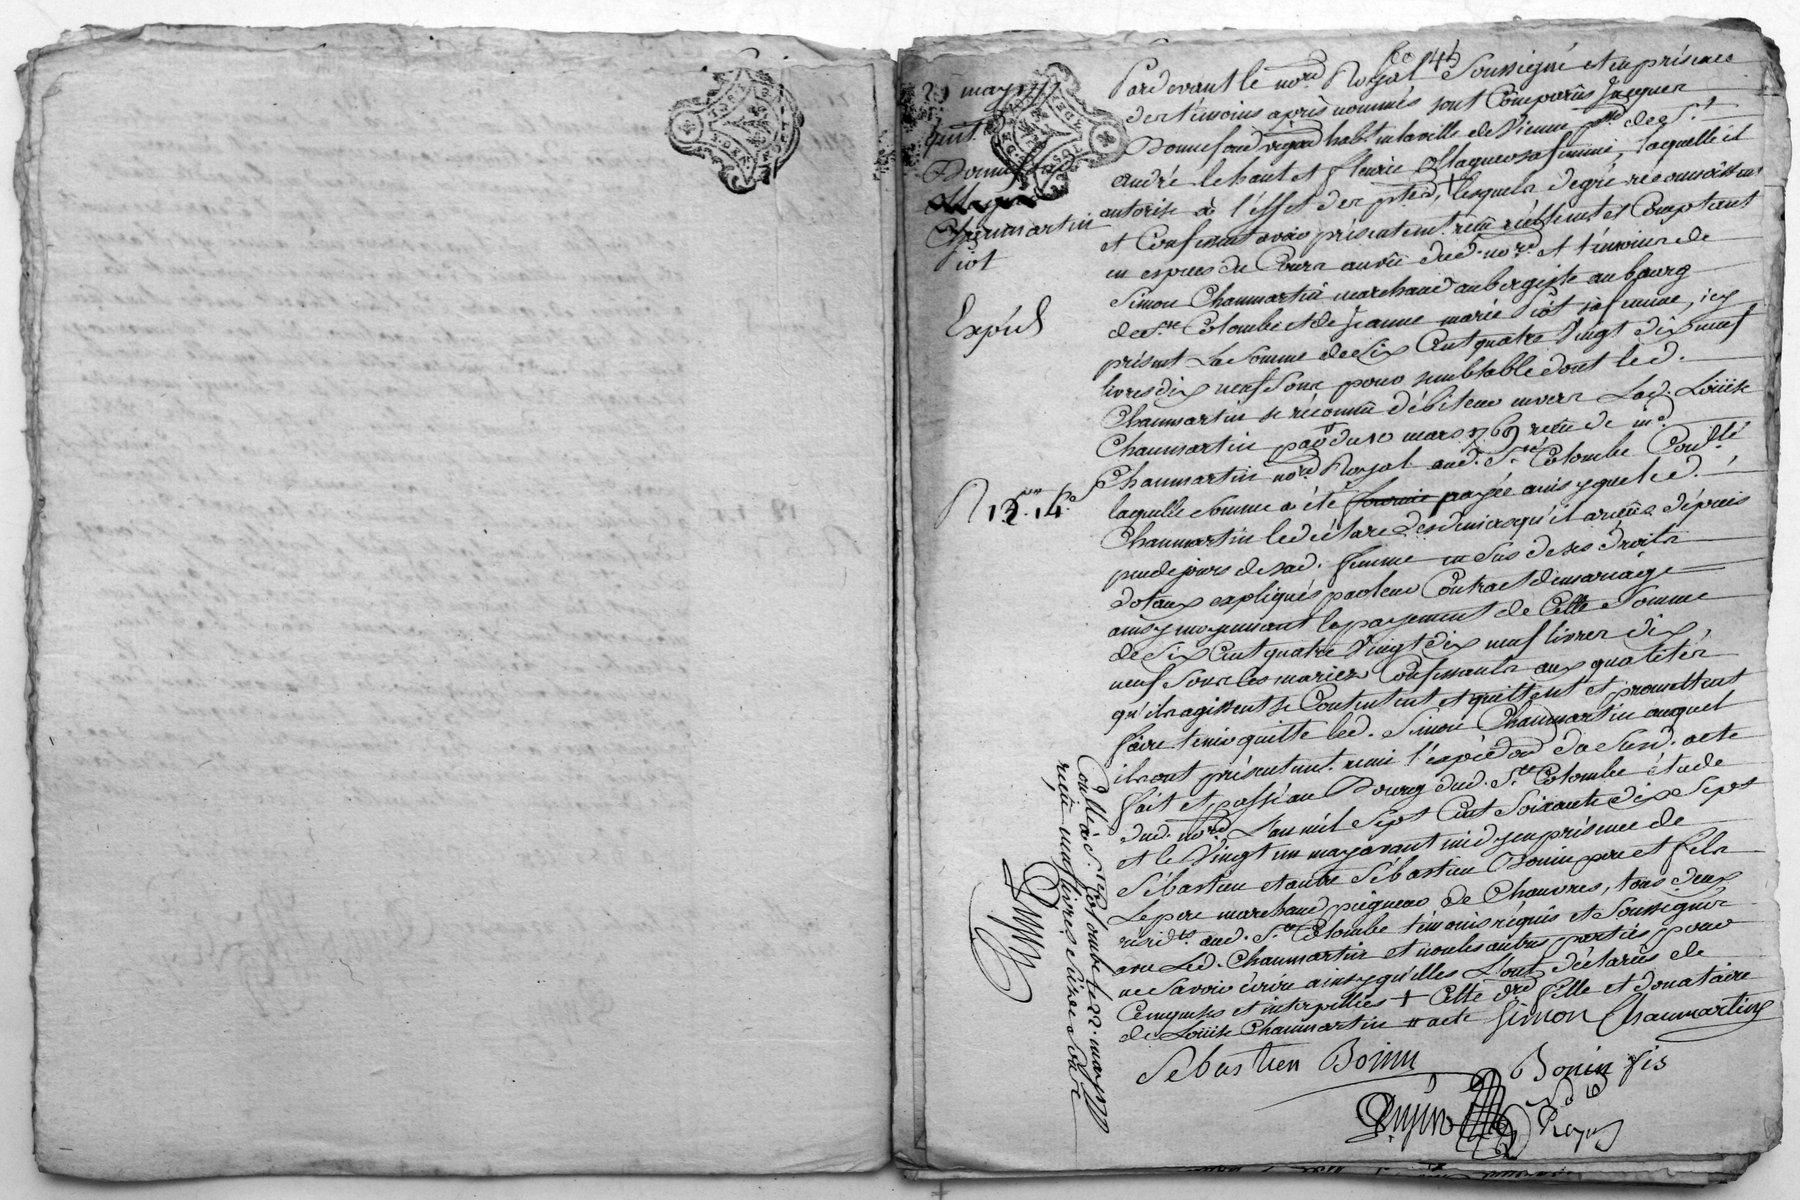 fo 44
21 may 1777
quit.ce
Bonnefond
Chaumartin
iot
Expéd
R 13.s 4.d
Pardevant le no.re Royal soussigné et en présence
des témoins après nommés sont Comparûs Jacques
Bonnefond vigneron habt. en la ville de Vienne p.sse de S.t
andré le haut et fleurie sa femme, laquelle il
autorise à l'effet des p.ntes, + lesquels de gré reconnoissent
et Confessent avoir présentement reçû réellement et Comptant
en espèces de Cours au vû dud. no.re et témoins de
Simon Chaumartin marchand aubergiste au bourg
de S.te Colombe et de Jeanne marie iot sa femme, icy
présent La Somme de Six Cent quatre Vingt dix neuf
livres dix neuf sous pour semblable dont led.
Chaumartin se reconnu débiteur envers Lad. Loüise
Chaumartin par du 10 mars 1769 reçu de m.e
Chaumartin no.re Royal aud. S.te Colombe Con.llé
laquelle somme a été payée ainsy que led.
Chaumartin le déclare des deniers qu'il a reçûs dépuis
peu de jours de sad. femme en sus de ses droits
dotaux expliqués par leur Contract de mariage
ainsy moyennant le payement de Cette Somme
de Six Cent quatre Vingt dix neuf livres dix
neuf sous les mariez Confessants aux qualités
qu'ils agissent se Contentent et quittent et promettent
faire tenir quitte led. Simon Chaumartin auquel
ils ont présentement remi l'expéd.on du Susd. acte
fait et passé au Bourg dud. S.te Colombe étude
dud. no.re L'an mil Sept Cent Soixante dix Sept
et le Vingt un may avant midy en présence de
Sébastien et autre Sébastien Bonin père et fils
Le père marchand peigneur de Chanvres, tous deux
resid.ts aud. S.te Colombe témoins réquis et soussignés
avec Led. Chaumartin et non les autres parties pour
ne Savoir écrire ainsy qu'elles L'ont déclarées de
Ce enquises et interpellées + Cette dre fille et donataire
de Loüise Chaumartin # acte Simon Chaumartin
Sebastien Bonin
Bonin fis
Con.llé à S.te Colombe le 22 may 1777
reçu neuf livres seize sous